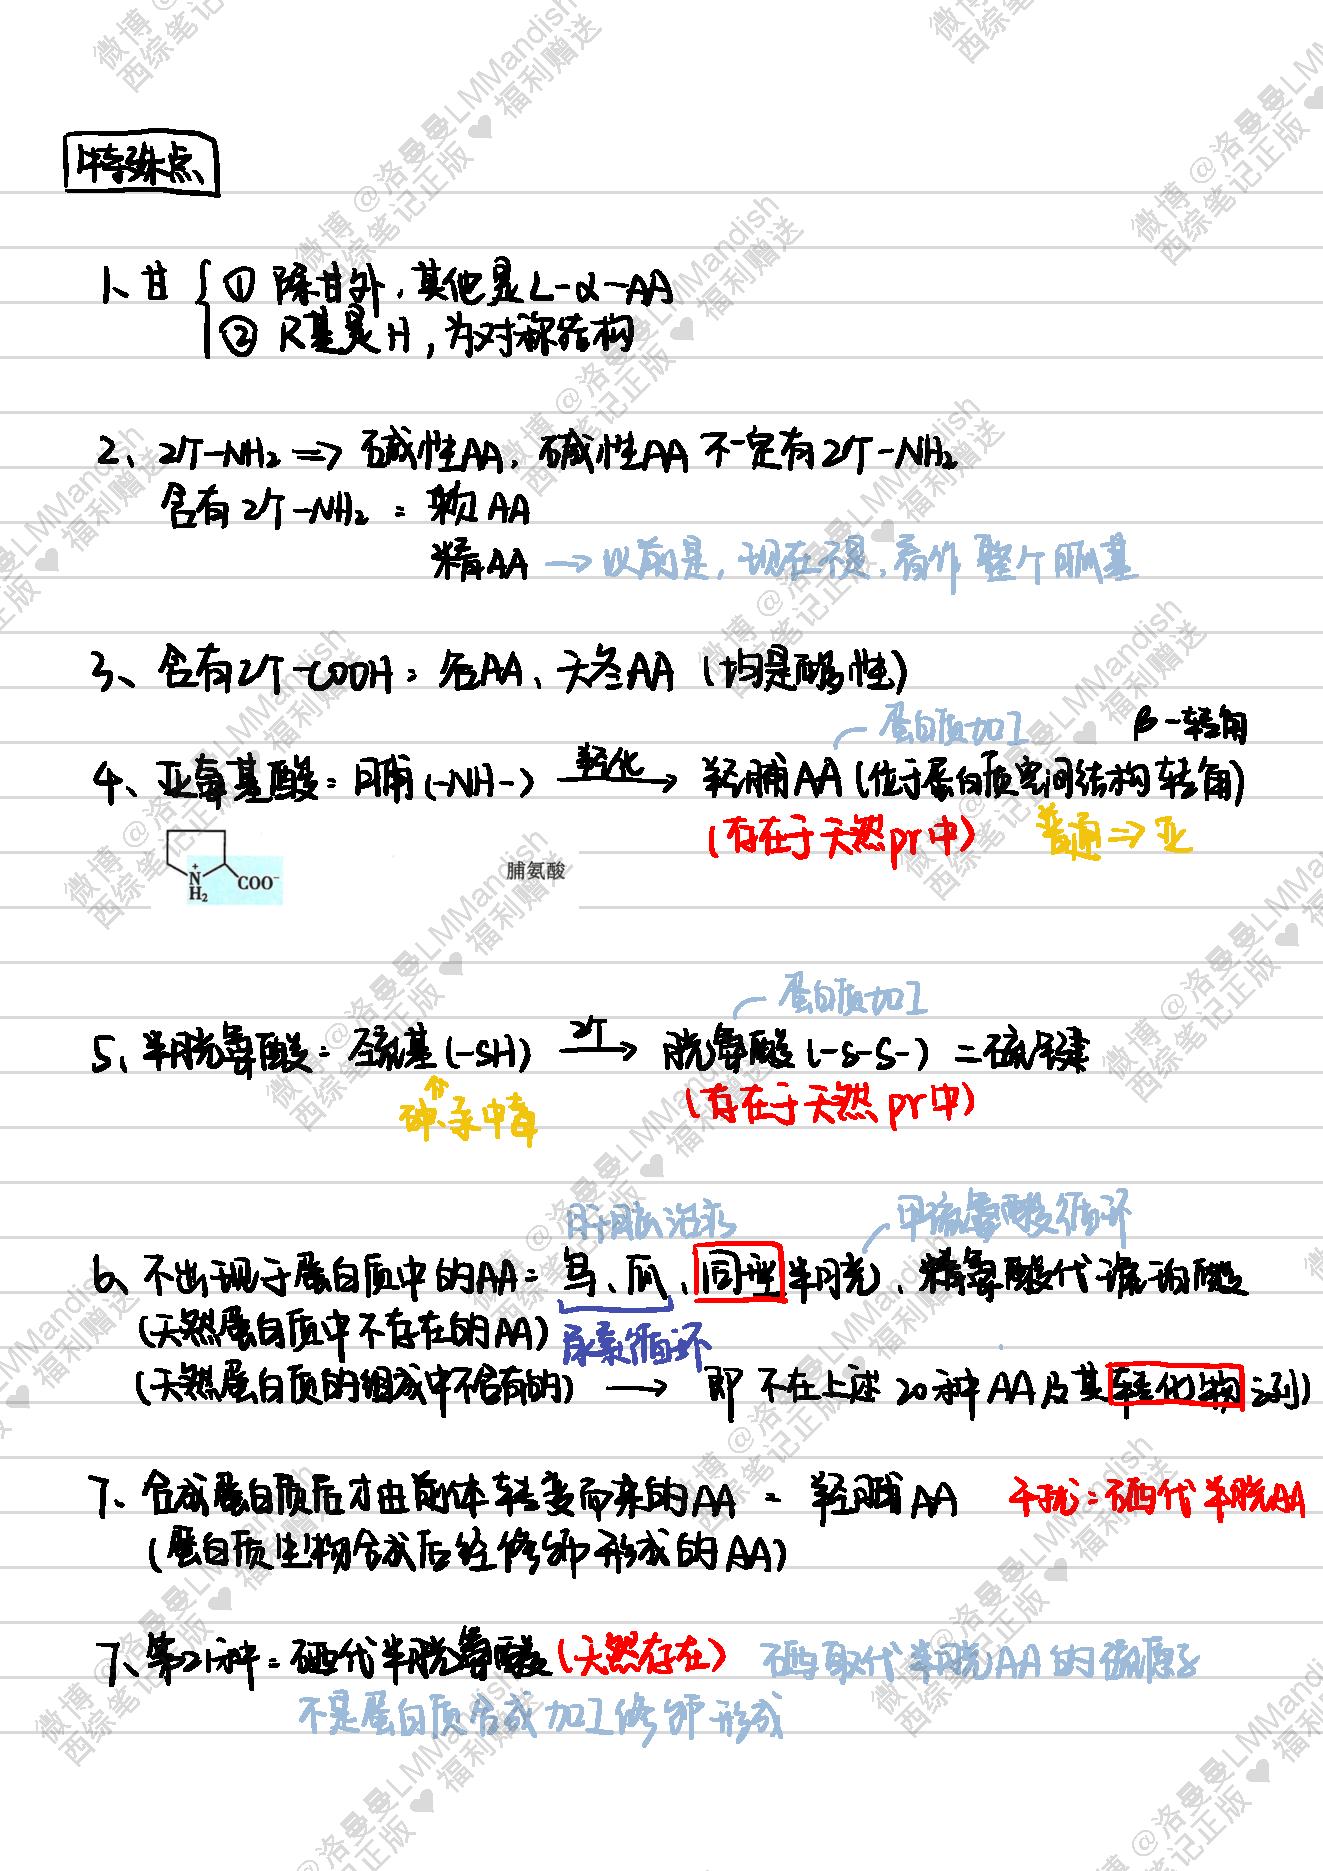 特殊点
1、甘 { ① 除甘外，其他是L-α-AA
② R基是H，为对称结构
2、2个-NH₂ => 碱性AA，碱性AA不一定有2个-NH₂
含有2个-NH₂：赖AA
精AA → 以前是，现在不是，看作整个胍基
3、含有2个-COOH：谷AA、天冬AA（均是酸性）
蛋白质加工 β-转角
4、亚氨基酸：脯(-NH-) 羟化→ 羟脯AA（位于蛋白质空间结构转角）
（存在于天然pr中） 普通=>亚
N⁺ H₂ COO⁻ 脯氨酸
蛋白质加工
5、半胱氨酸：巯基(-SH) 2个→ 胱氨酸(-S-S-) 二硫键
砷、汞中毒 （存在于天然pr中）
肝脏治疗 甲硫氨酸循环
6、不出现于蛋白质中的AA：鸟、瓜、同型半胱、精氨酸代琥珀酸
（天然蛋白质中不存在的AA） 尿素循环
（天然蛋白质的组成中不含有的）→ 即不在上述20种AA及其转化物之列）
7、合成蛋白质后才由前体转变而来的AA：羟脯AA 干扰：硒代半胱AA
（蛋白质生物合成后经修饰形成的AA）
7、第21种：硒代半胱氨酸（天然存在） 硒取代半胱AA的硫原子
不是蛋白质合成加工修饰形成
微博@洛曼曼LMMandish
西综笔记正版♥福利赠送